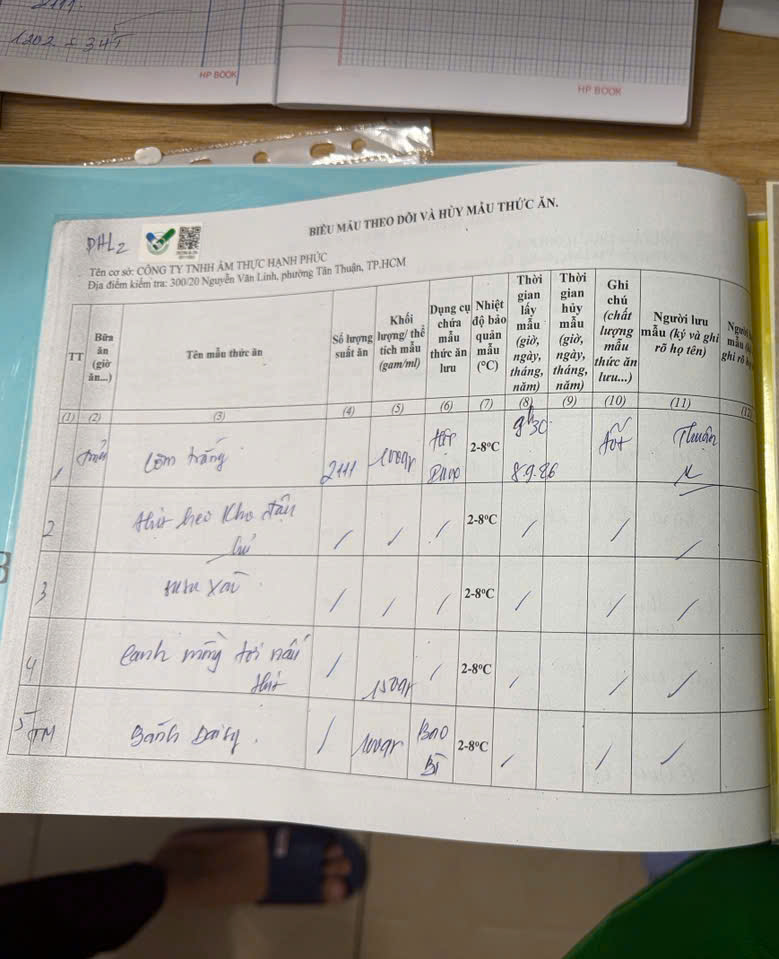 1202 + 345
HP BOOK
HP BOOK
ĐHL2
BIỂU MẪU THEO DÕI VÀ HỦY MẪU THỨC ĂN.
Tên cơ sở: CÔNG TY TNHH ẨM THỰC HẠNH PHÚC
Địa điểm kiểm tra: 300/20 Nguyễn Văn Linh, phường Tân Thuận, TP.HCM
TT
Bữa ăn (giờ ăn...)
Tên mẫu thức ăn
Số lượng suất ăn
Khối lượng/ thể tích mẫu (gam/ml)
Dụng cụ chứa mẫu thức ăn lưu
Nhiệt độ bảo quản mẫu (°C)
Thời gian lấy mẫu (giờ, ngày, tháng, năm)
Thời gian hủy mẫu (giờ, ngày, tháng, năm)
Ghi chú (chất lượng mẫu thức ăn lưu...)
Người lưu mẫu (ký và ghi rõ họ tên)
(1) (2) (3) (4) (5) (6) (7) (8) (9) (10) (11) (12)
1 Cơm trắng 2111 100gr 2-8°C 9h30 8.9.26 Tốt Thuận
2 thịt heo kho đậu hủ / / / 2-8°C / / /
3 susu xào / / / 2-8°C / / /
4 Canh mồng tơi nấu thịt / 150gr / 2-8°C / / /
5 TM Bánh / 100gr Bao Bì 2-8°C / / /